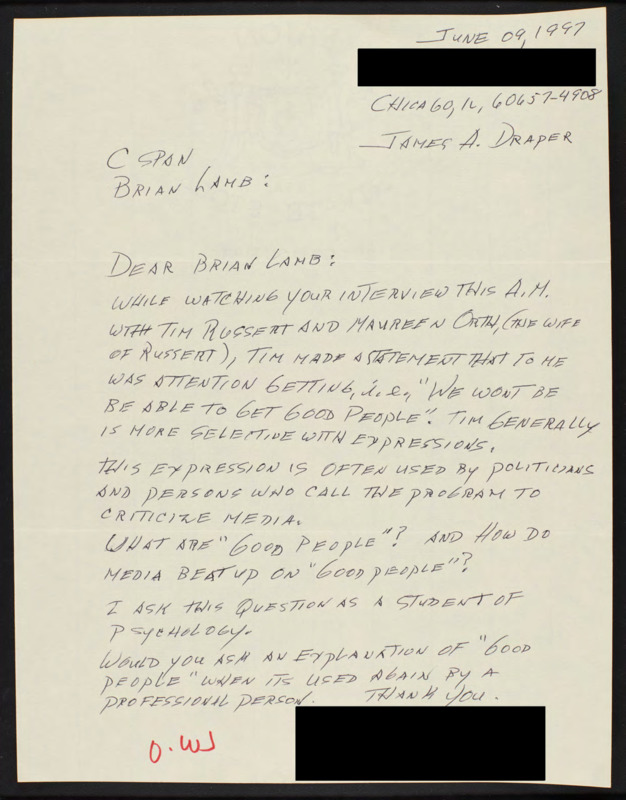 JUNE 09, 1997
CHICAGO, IL, 60657-4908
JAMES A. DRAPER
C SPAN
BRIAN LAMB:
DEAR BRIAN LAMB:
WHILE WATCHING YOUR INTERVIEW THIS A.M.
WITH TIM RUSSERT AND MAUREEN ORTH, (THE WIFE
OF RUSSERT), TIM MADE A STATEMENT THAT TO ME
WAS ATTENTION GETTING, i.e., "WE WONT BE
BE ABLE TO GET GOOD PEOPLE". TIM GENERALLY
IS MORE SELECTIVE WITH EXPRESSIONS.
THIS EXPRESSION IS OFTEN USED BY POLITICIANS
AND PERSONS WHO CALL THE PROGRAM TO
CRITICIZE MEDIA.
WHAT ARE "GOOD PEOPLE"? AND HOW DO
MEDIA BEAT UP ON "GOOD PEOPLE"?
I ASK THIS QUESTION AS A STUDENT OF
PSYCHOLOGY.
WOULD YOU ASK AN EXPLANATION OF "GOOD
PEOPLE" WHEN ITS USED AGAIN BY A
PROFESSIONAL PERSON. THANK YOU.